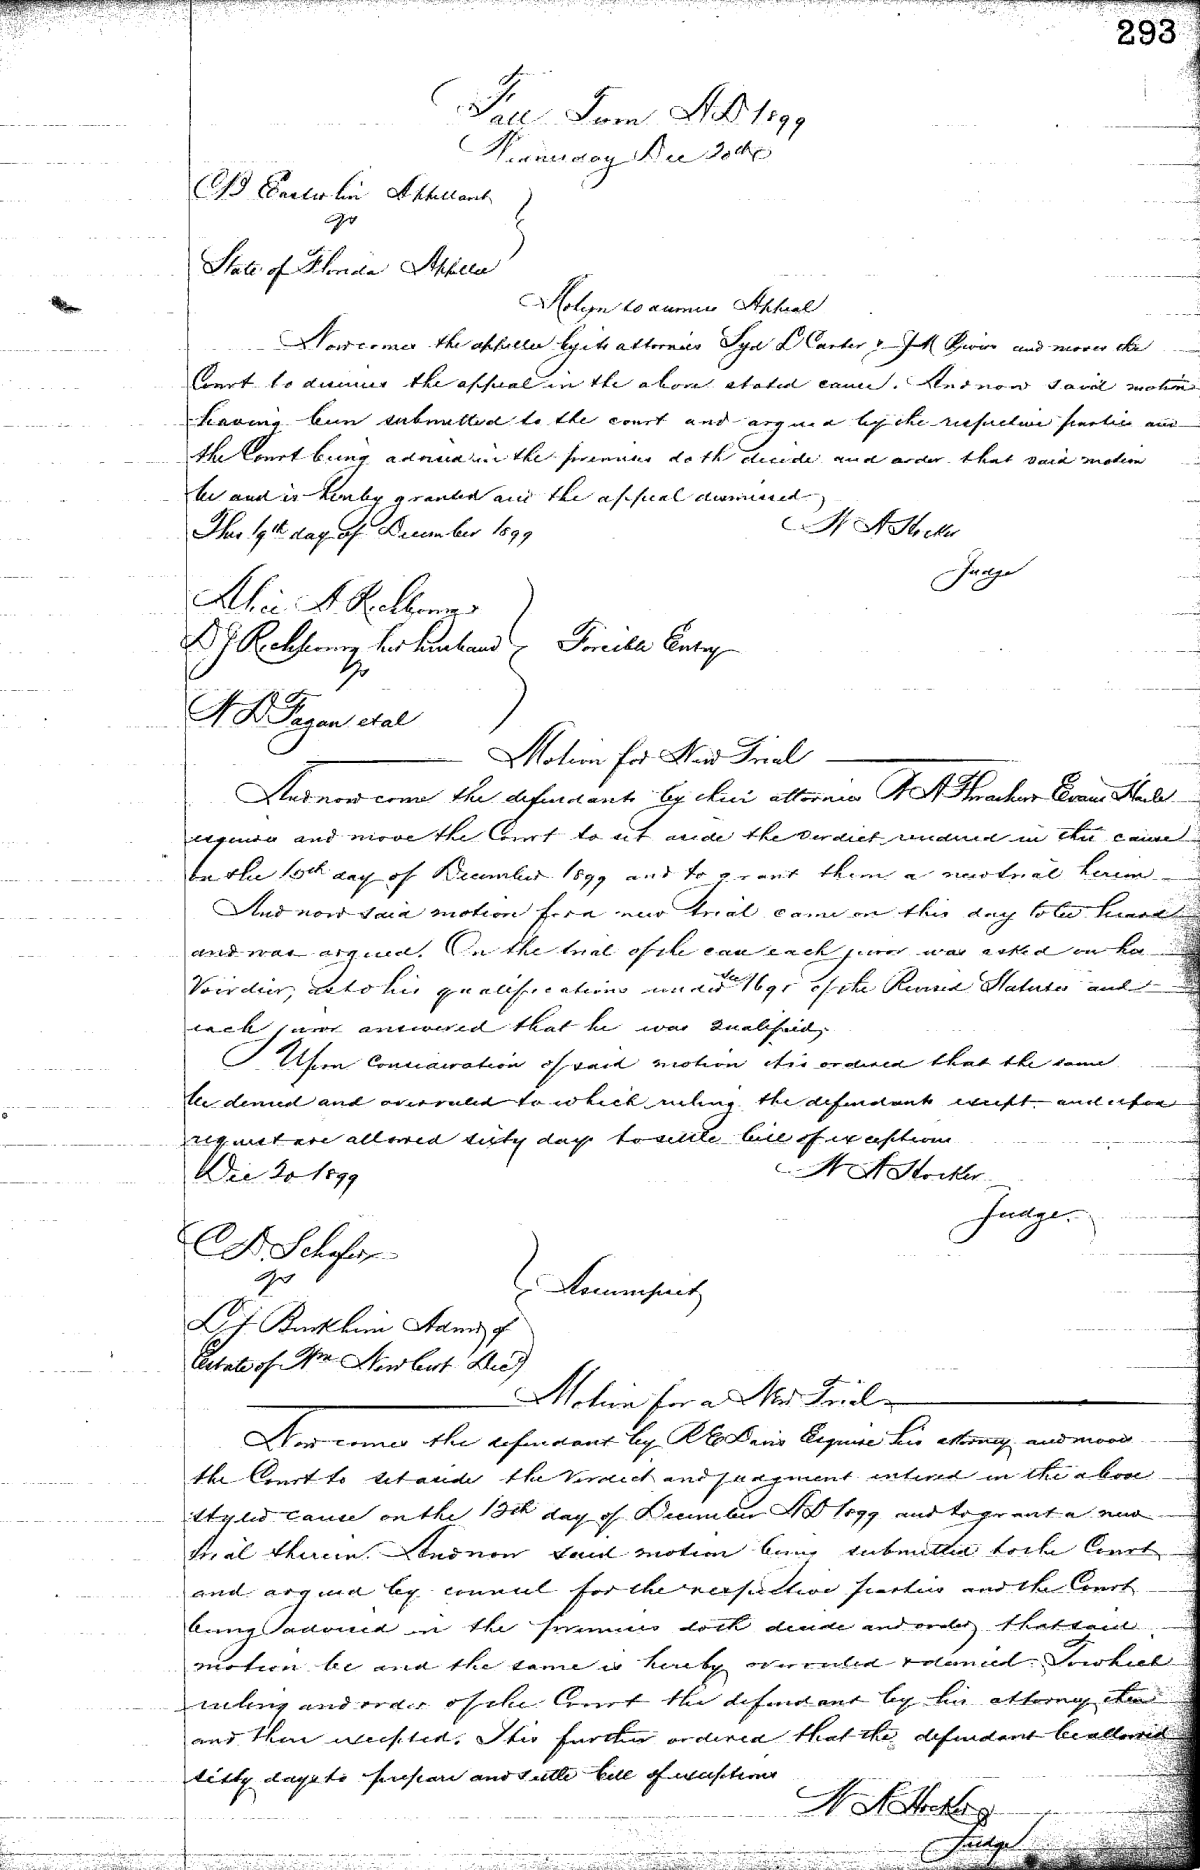 293
Fall Term A.D. 1899
Wednesday Dec 20th
CB Appellant
vs
State of Florida Appellee
Motion to dismiss Appeal
Now comes the appellee by its attornies Syd L Carter & and moves the
Court to dismiss the appeal in the above stated cause. And now said motion
having been submitted to the court and argued by the respective parties and
the Court being advised in the premises doth decide and order that said motion
be and is hereby granted and the appeal dismissed
This 19th day of December 1899
W A Hocker
Judge
Alice A
D J her husband Forcible Entry
vs
A D Fagan et al
Motion for New Trial
And now come the defendants by their attornies Evans Haile
esquires and move the Court to set aside the verdict rendered in this cause
on the day of December 1899 and to grant them a new trial herein
And now said motion for a new trial came on this day to be heard
and was argued. On the trial of the case each juror was asked on his
Voirdier, as to his qualifications under Sec of the Revised Statutes and
each juror answered that he was qualified,
Upon consideration of said motion it is ordered that the same
be denied and overruled to which ruling the defendants except and upon
request are allowed sixty days to settle bill of exceptions
Dec 20 1899
W A Hocker
Judge.
Schafer
vs
Assumpsit
Admr of
Estate of Wm Decd
Motion for a New Trial
Now comes the defendant by R E Davis Esquire his attorney and moves
the Court to set aside the Verdict and judgment entered in the above
styled cause on the 13th day of December AD 1899 and to grant a new
trial therein. And now said motion being submitted to the Court
and argued by council for the respective parties and the Court
being advised in the premises doth decide and order that said
motion be and the same is hereby overruled & denied. To which
ruling and order of the Court the defendant by his attorney then
and there excepted. It is further ordered that the defendant be allowed
sixty days to prepare and settle bill of exceptions
W A Hocker
Judge